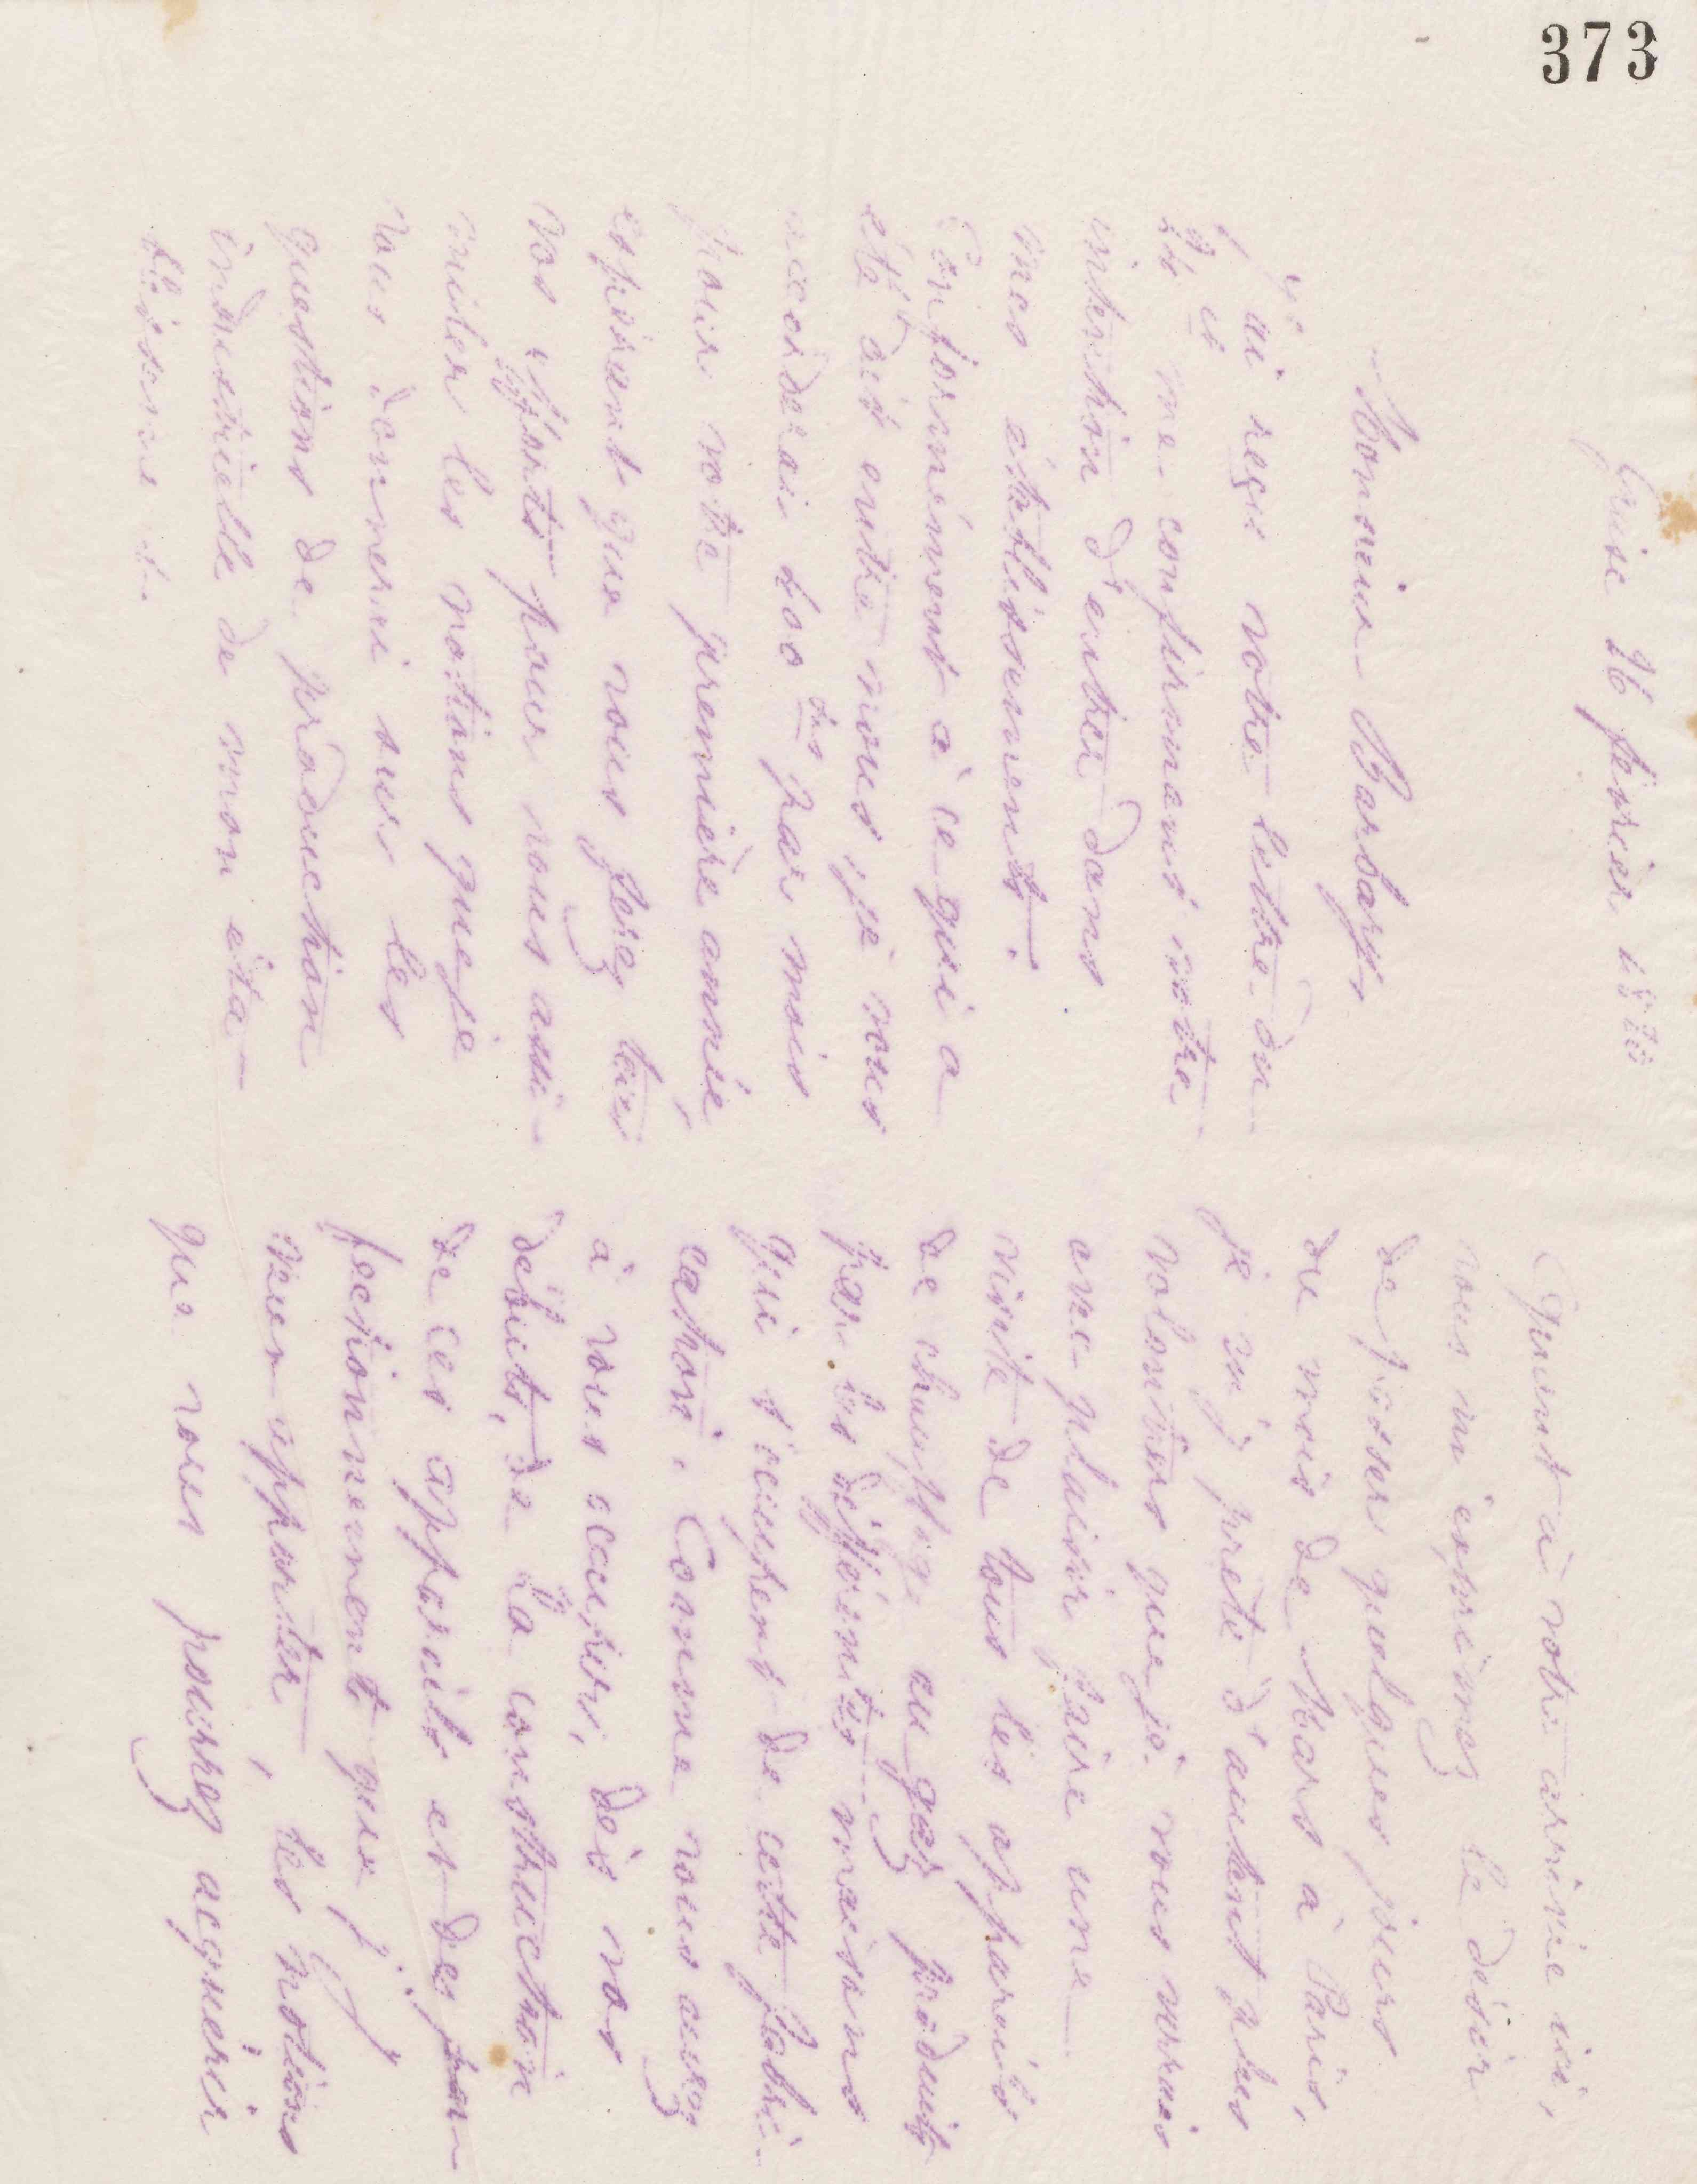 373
Guise 26 février 18
Monsieur Barbary,
J'ai reçu votre lettre du
et me confirmant votre
intention d'entrer dans
mes établissements.
Conformément à ce qui a
été dit entre nous, je vous
accorderai par mois
pour votre première année,
espérant que vous ferez tous
vos efforts pour vous assi-
miler les notions que je
vous donnerai sur les
questions de production
industrielle de mon éta-
blissement.
Quant à votre arrivée ici,
vous m'exprimez le désir
de passer quelques jours
du mois de Mars à Paris,
je m'y prête d'autant plus
volontiers que je vous verrais
avec plaisir faire une
visite de tous les appareils
de chauffage au gaz produits
par les différentes maisons
qui s'occupent de cette fabri-
cation. Comme vous aurez
à vous occuper, dès vos
débuts, de la construction
de ces appareils et des per-
fectionnements que j'y
veux apporter, les notions
que vous pourrez acquérir